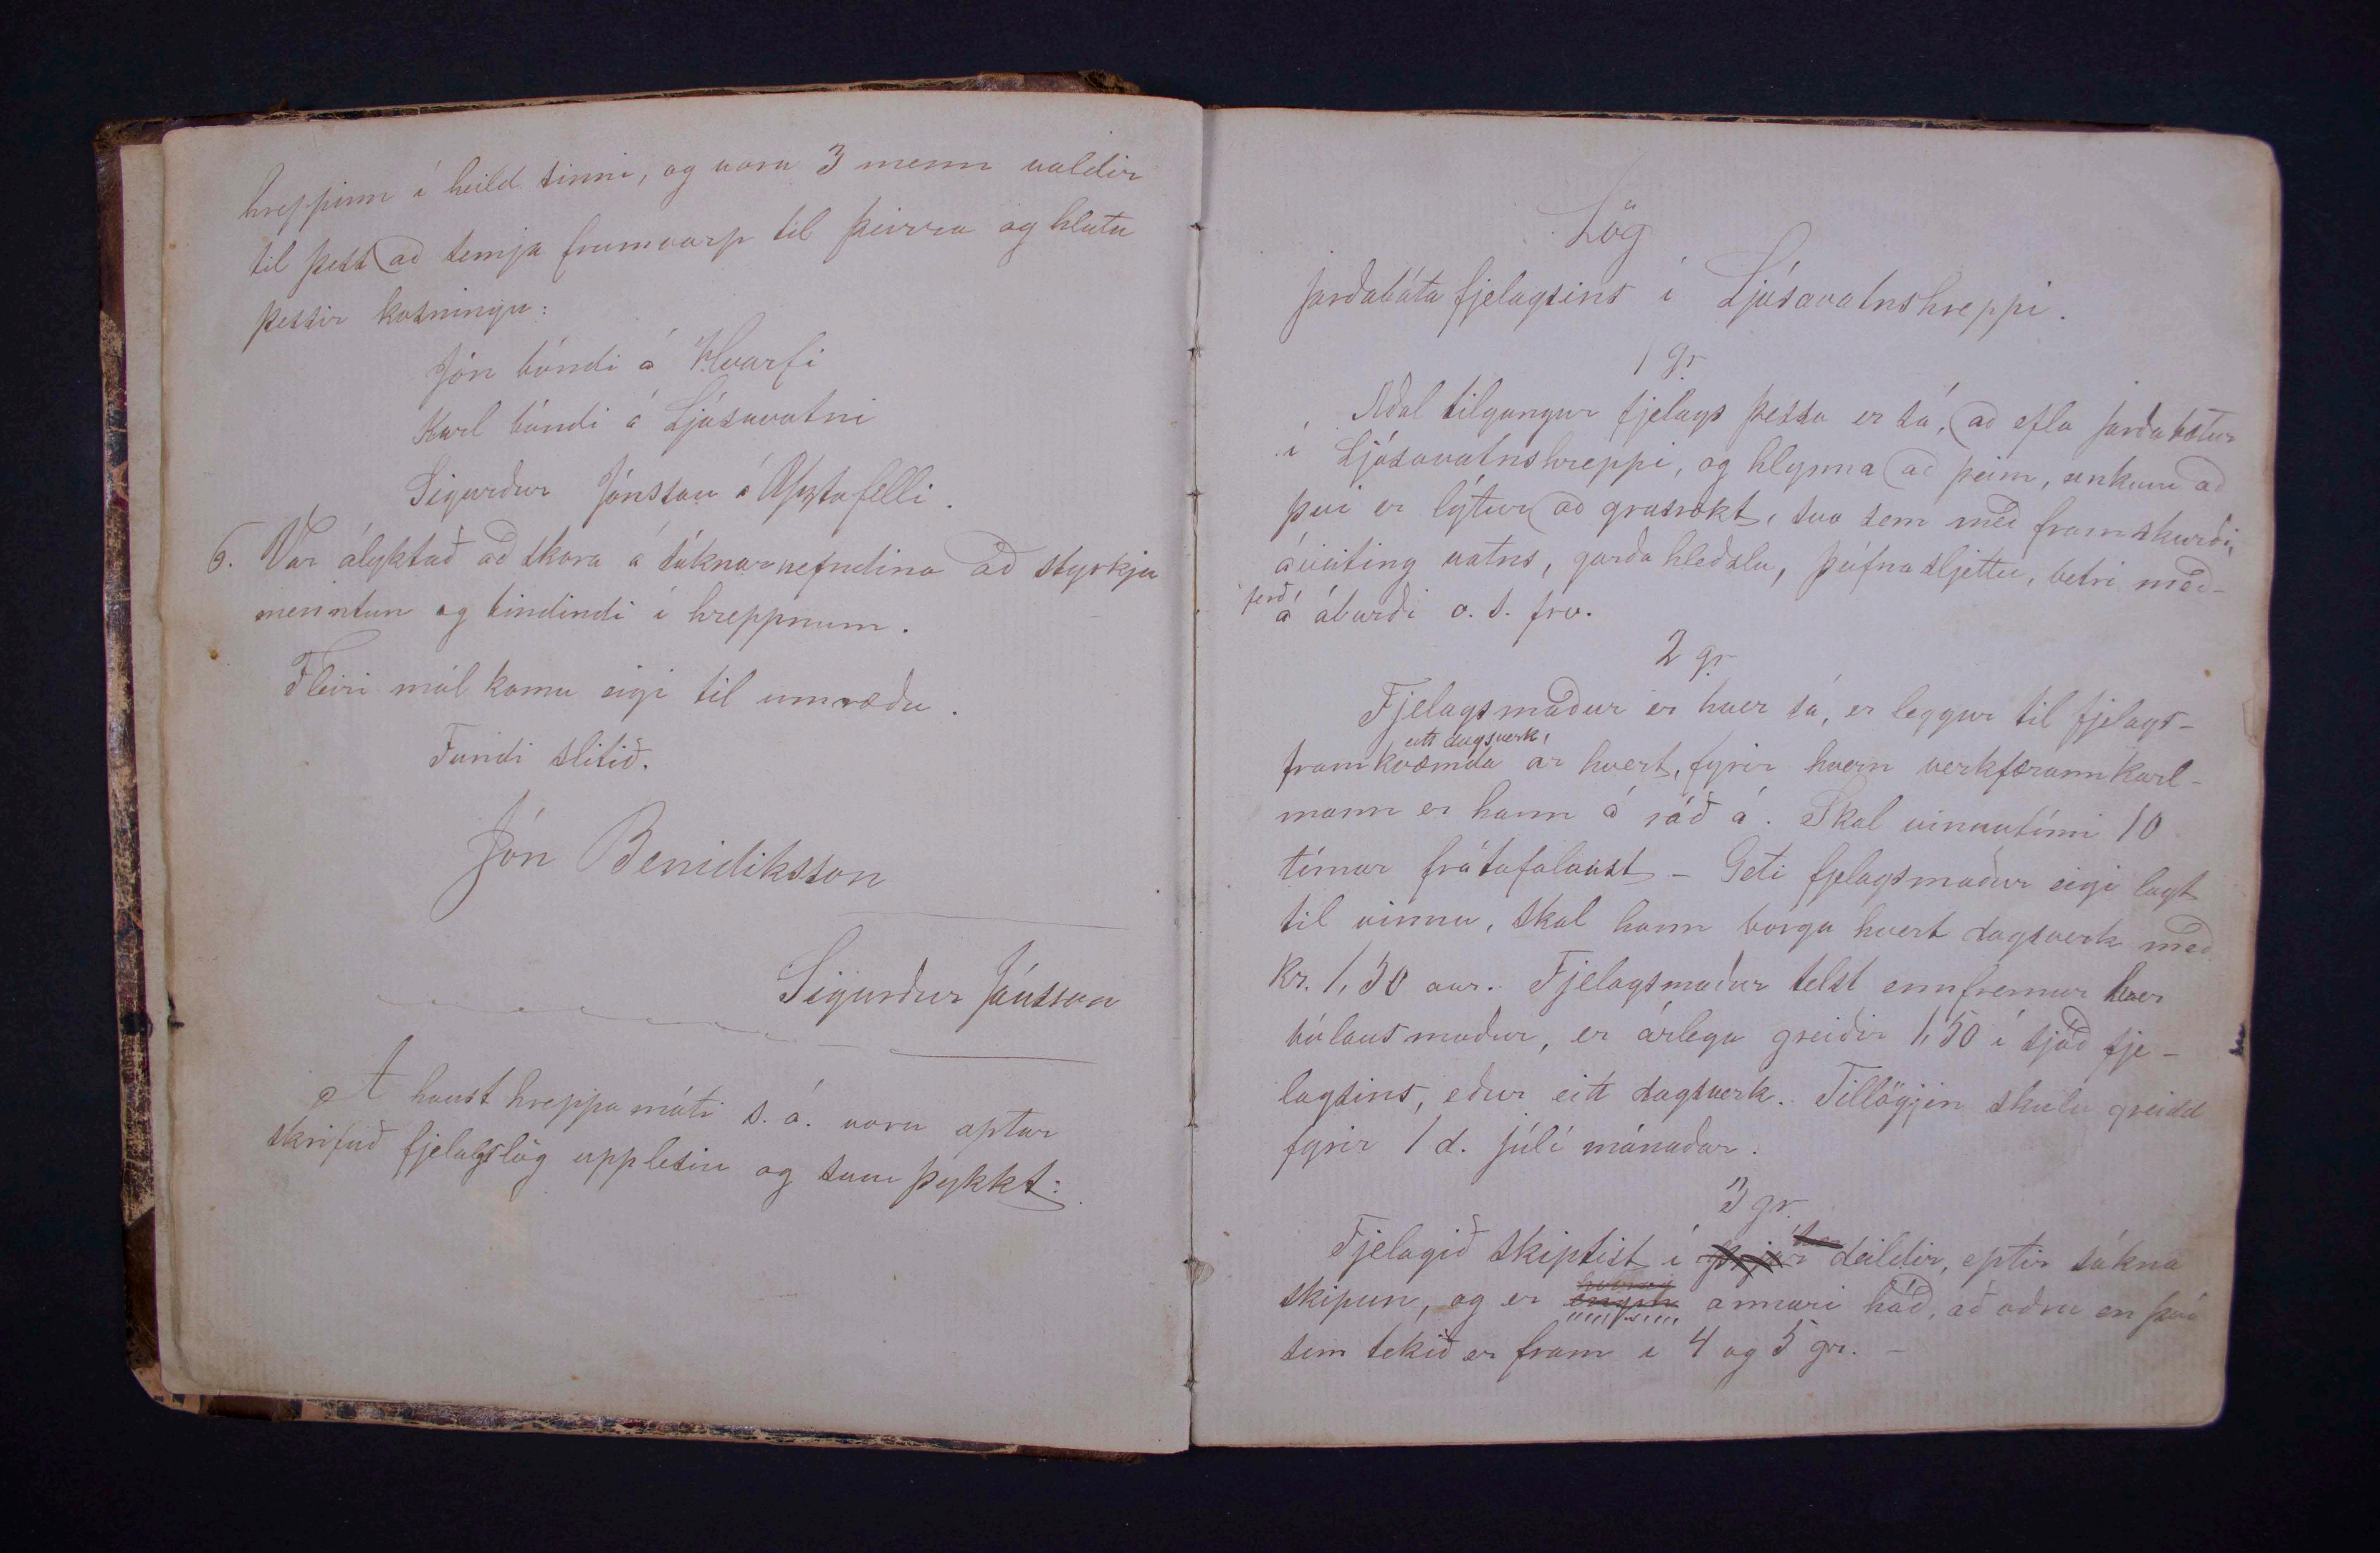 hreppinn í heild sinni, og voru 3 menn valdir
til þess að semja frumvarp til þeirra og hlutu
þessir kosningu:
Jón bóndi á Hvarfi
Karl bóndi á Ljósavatni
Sigurður Jónsson á Ystafelli.
6. Var ályktað að skora á sóknarnefndina að styrkja
menntun og bindindi í hreppnum.
Fleiri mál komu eigi til umræðu.
Fundi slitið.
Jón Benidiktsson
Sigurður Jónsson
Á haust hreppamóti s. á. voru eptur
skrifuð fjelagslög upplesin og samþykkt:
Lög
Jarðabóta fjelagsins í Ljósavatnshreppi.
1 gr.
Aðal tilgangur fjelags þessa er sá, að efla jarðabætur
í Ljósavatnshreppi, og hlynna að þeim, einkum að
því er lýtur að grasrækt, svo sem með framskurði,
áveiting vatns, garða hleðslu, þúfnasljettu, betri með-
ferð á áburði o. s. frv.
2 gr.
Fjelagsmaður er hver sá, er leggur til fjelags-
eitt dagsverk,
framkvæmda ár hvert, fyrir hvern verkfærann karl-
mann er hann á ráð á. Skal vinnutími 10
tímar frátafalaust - Geti fjelagsmaður eigi lagt
til vinnu, skal hann borga hvert dagsverk með
kr. 1,50 aur. Fjelagsmaður telst ennfremur hver
búlaus maður, er árlega greiðir 1,50 í sjóð fje-
lagsins, eður eitt dagsverk. Tillögin skulu greidd
fyrir 1 d. júlí mánaðar.
3 gr.
Fjelagið skiptist í deildir, eptir sókna
skipun, og er engin annari háð, að öðru en því
sem tekið er fram í 4 og 5 gr. -